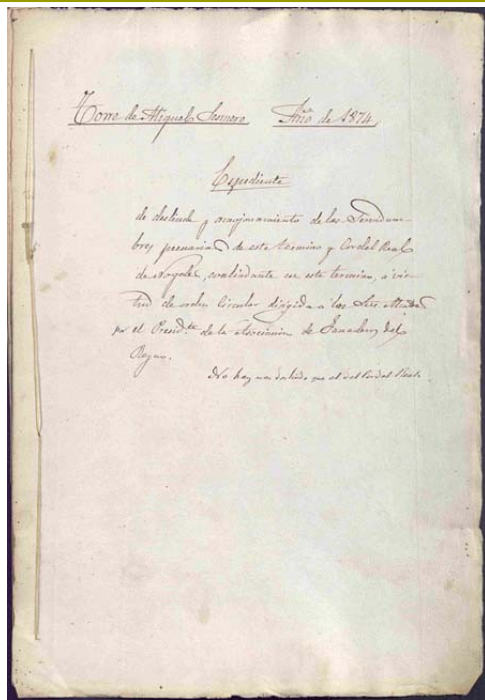 Torre de Miguel Sesmero Año de 1874
Expediente
de deslinde y amojonamiento de las Servidum-
bres pecuarias de este termino y Cordel Real
de colindante con este termino, a vir-
tud de orden Circular dirigida a los Sres Alcaldes
por el Presid.te de la Asociacion de Ganaderos del
Reyno.
No hay mas deslinde que el del Cordel Real.